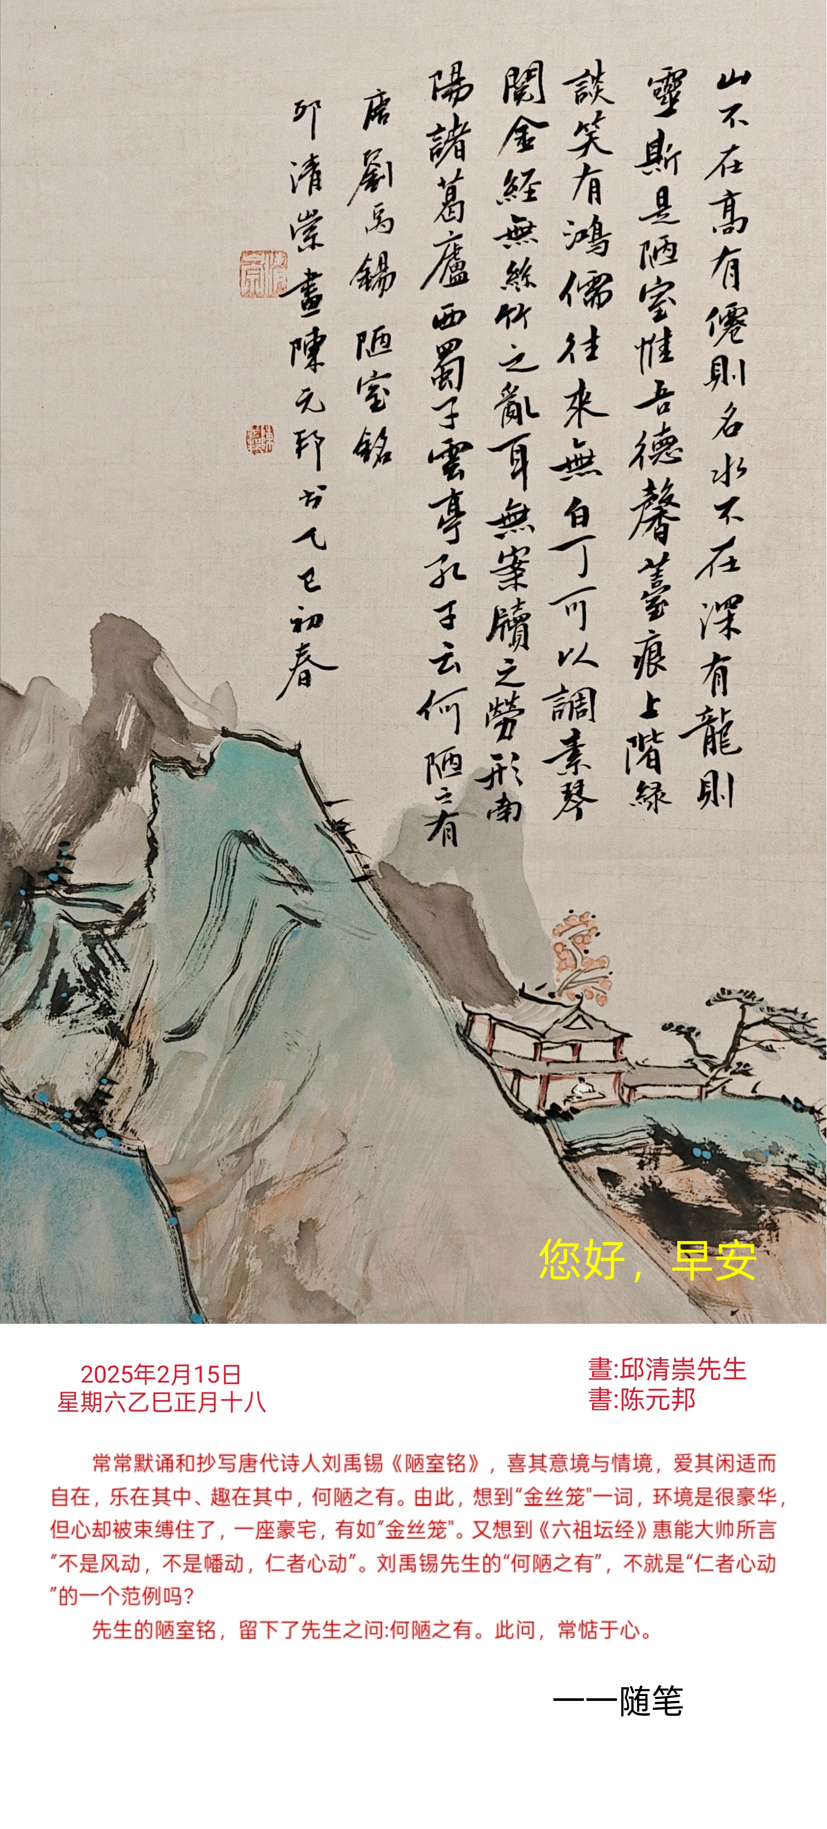 山不在高有僊則名水不在深有龍則
靈斯是陋室惟吾德馨薹痕上階緑
談笑有鴻儒往來無白丁可以調素琴
閱金經無絲竹之亂耳無案牘之勞形南
陽諸葛廬西蜀子雲亭孔子云何陋之有
唐劉禹錫陋室銘
邱清崇畫陳元邦书乙巳初春
您好，早安
2025年2月15日
星期六乙巳正月十八
畫:邱清崇先生
書:陈元邦
常常默诵和抄写唐代诗人刘禹锡《陋室铭》，喜其意境与情境，爱其闲适而
自在，乐在其中、趣在其中，何陋之有。由此，想到“金丝笼"一词，环境是很豪华，
但心却被束缚住了，一座豪宅，有如"金丝笼"。又想到《六祖坛经》惠能大帅所言
"不是风动，不是幡动，仁者心动”。刘禹锡先生的“何陋之有”，不就是“仁者心动
"的一个范例吗?
先生的陋室铭，留下了先生之问:何陋之有。此问，常惦于心。
一一随笔